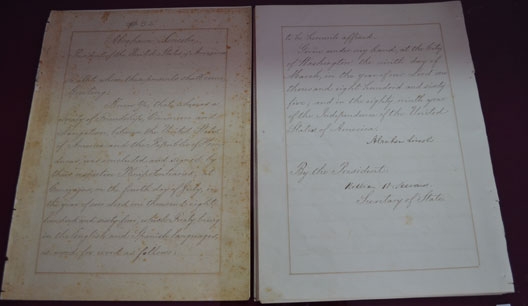 Abraham Lincoln,
President of the United States of America
To all whom these presents shall come
Greeting:
Know Ye, that whereas a
Treaty of Friendship, Commerce and
Navigation between the United States
of America and the Republic of
was concluded and signed by
their respective Plenipotentiaries, at
on the fourth day of July, in
the year of our Lord one thousand eight
hundred and sixty four, which Treaty being
in the English and Spanish languages
is word for word as follows:
to be hereunto affixed.
Given under my hand, at the City
of Washington the ninth day of
March, in the year of our Lord one
thousand eight hundred and sixty
five, and in the eighty ninth year
of the Independence of the United
States of America.
Abraham Lincoln
By the President:
William H. Seward,
Secretary of State